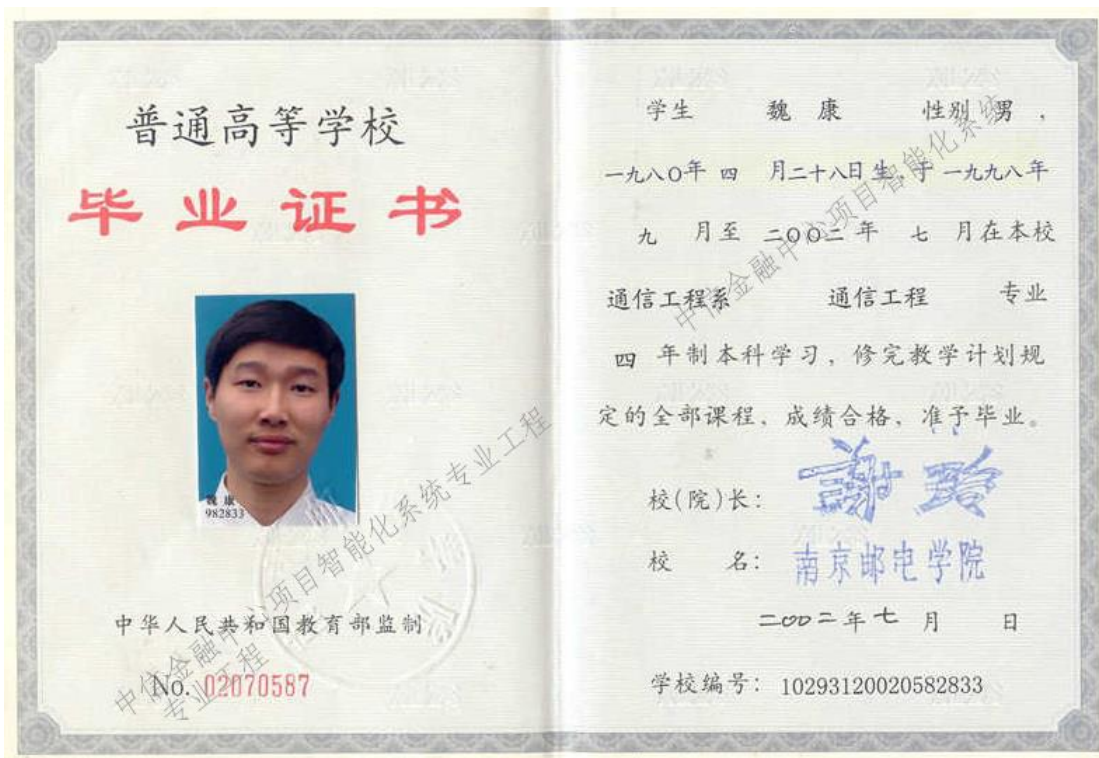 普通高等学校
毕业证书
魏康
982833
中华人民共和国教育部监制
No. 02070587
中信金融中心项目智能化系统专业工程
中信金融中心项目智能化系统
专业工程
学生 魏康 性别 男，
一九八〇年 四 月二十八日生，于 一九九八年
九 月至 二〇〇二年 七 月在本校
通信工程系 通信工程 专业
四 年制本科学习，修完教学计划规
定的全部课程，成绩合格，准予毕业。
校(院)长：
校 名：南京邮电学院
二〇〇二年七月 日
学校编号：10293120020582833